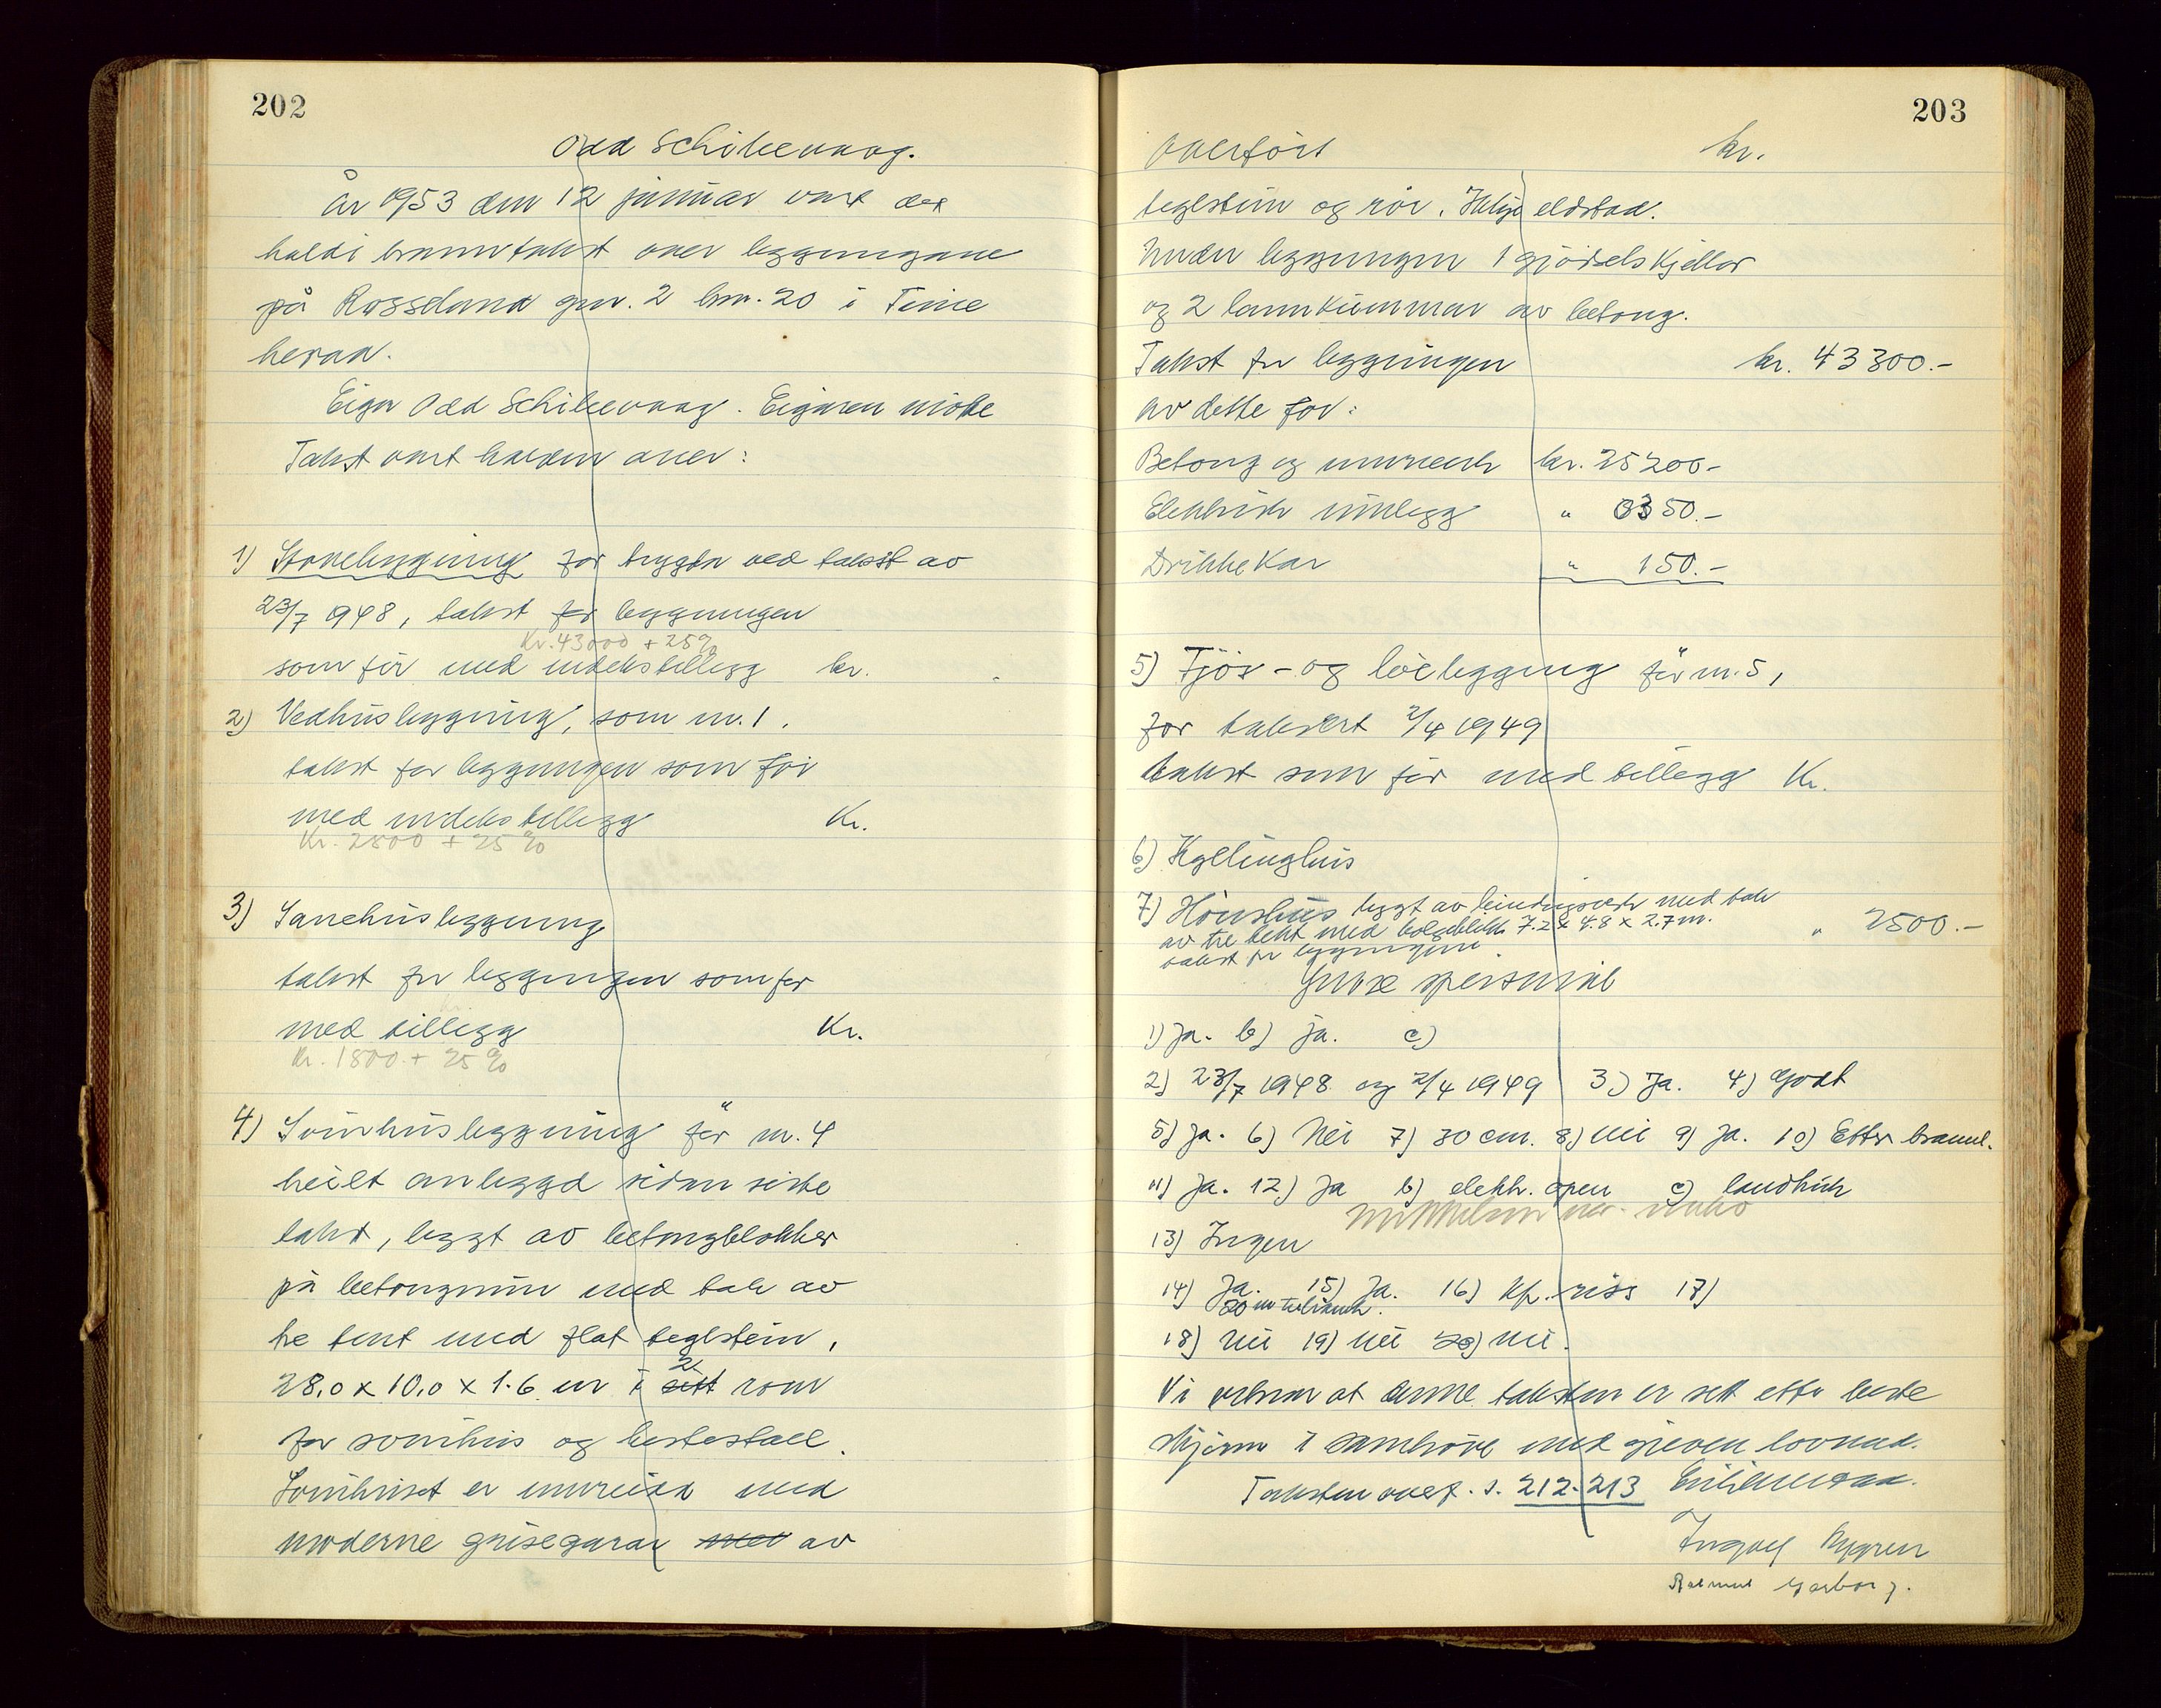 202
Odd Schikevaag.
År 1953 den 12 januar vart det
haldi branntakst over byggingane
på Rossland gnr. 2 bnr. 20 i Time
herad.
Eigar Odd Schikevaag. Eigaren møtte
Takst vart halden over:
1) Stovebygging før trygda ved takst av
23/7 1948, takst for byggingen
Kr. 43000 + 25%
som før med indekstillegg kr.
2) Vedhusbygging, som nr. 1.
takst for byggingen som før
med indekstillegg Kr.
Kr. 2500 + 25%
3) Sauehusbygging
takst for byggingen som før
med tillegg Kr.
Kr. 1800.+ 25%
4) Svinhusbygging før nr. 4
heilt ombygd sidan siste
takst, bygt av betongblokker
på betongmur med tak av
tre tekt med flat teglstein,
28,0 x 10,0 x 1.6 m i 2 rom
for svinhus og hestestall.
Svinhuset er innreidd med
moderne grisegarar av
203
Overført kr.
teglstein og rör. Ikkje eldstad.
Under byggingen 1 gjödselskjellar
og 2 landkummar av betong.
Takst for byggingen kr. 43300.-
av dette for:
Betong og murverk kr. 25200-
Elektrisk innlegg " 3350.-
Drikkekar " 150.-
5) Fjös- og löebygging för nr. 5,
før taksert 2/4 1949
takst som før med tillegg Kr.
6) Kyllinghus
7) Hönshus bygt av bindingsverk med tak
av tre tekt med bølgeblikk 7.2 x 4.8 x 2.7 m.
takst for byggingen " 2500.-
Ymse spersmål
1) Ja. b) ja. c)
2) 23/7 1948 og 2/4 1949 3) Ja. 4) Godt
5) ja. 6) Nei 7) 30 cm. 8) Nei 9) Ja. 10) Etter brannl.
11) Ja. 12) Ja b) elekk. open c) landbruk
13) Ingen
14) Ja. 15) Ja. 16) Kfr. riss 17)
18) Nei 19) Nei 20) Nei.
Vi vitnar at denne taksten er sett etter beste
skjønn i samhøve med gjeven lovnad.
Taksten overf. s. 212-213
Ingvald Nygren
Rasmus Garborg.